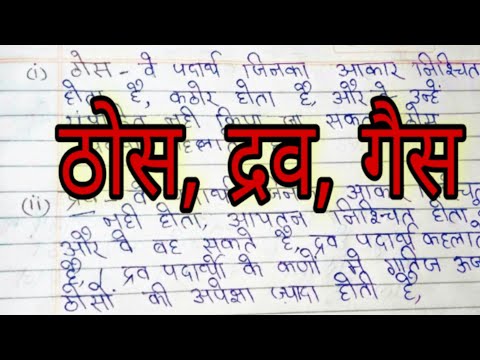 (i) ठोस - वे पदार्थ जिनका आकार निश्चित
होता है, कठोर होता है, और वे उन्हें
नहीं किया जा सकता ठोस
ठोस, द्रव, गैस
(ii) द्रव - वे आकार
नहीं होता, आयतन निश्चित होता
और वे बह सकते है, द्रव पदार्थ कहलाते
है, / द्रव पदार्थो के कणों मे गतिज ऊर्जा
ठोसों की अपेक्षा ज़्यादा होती है,